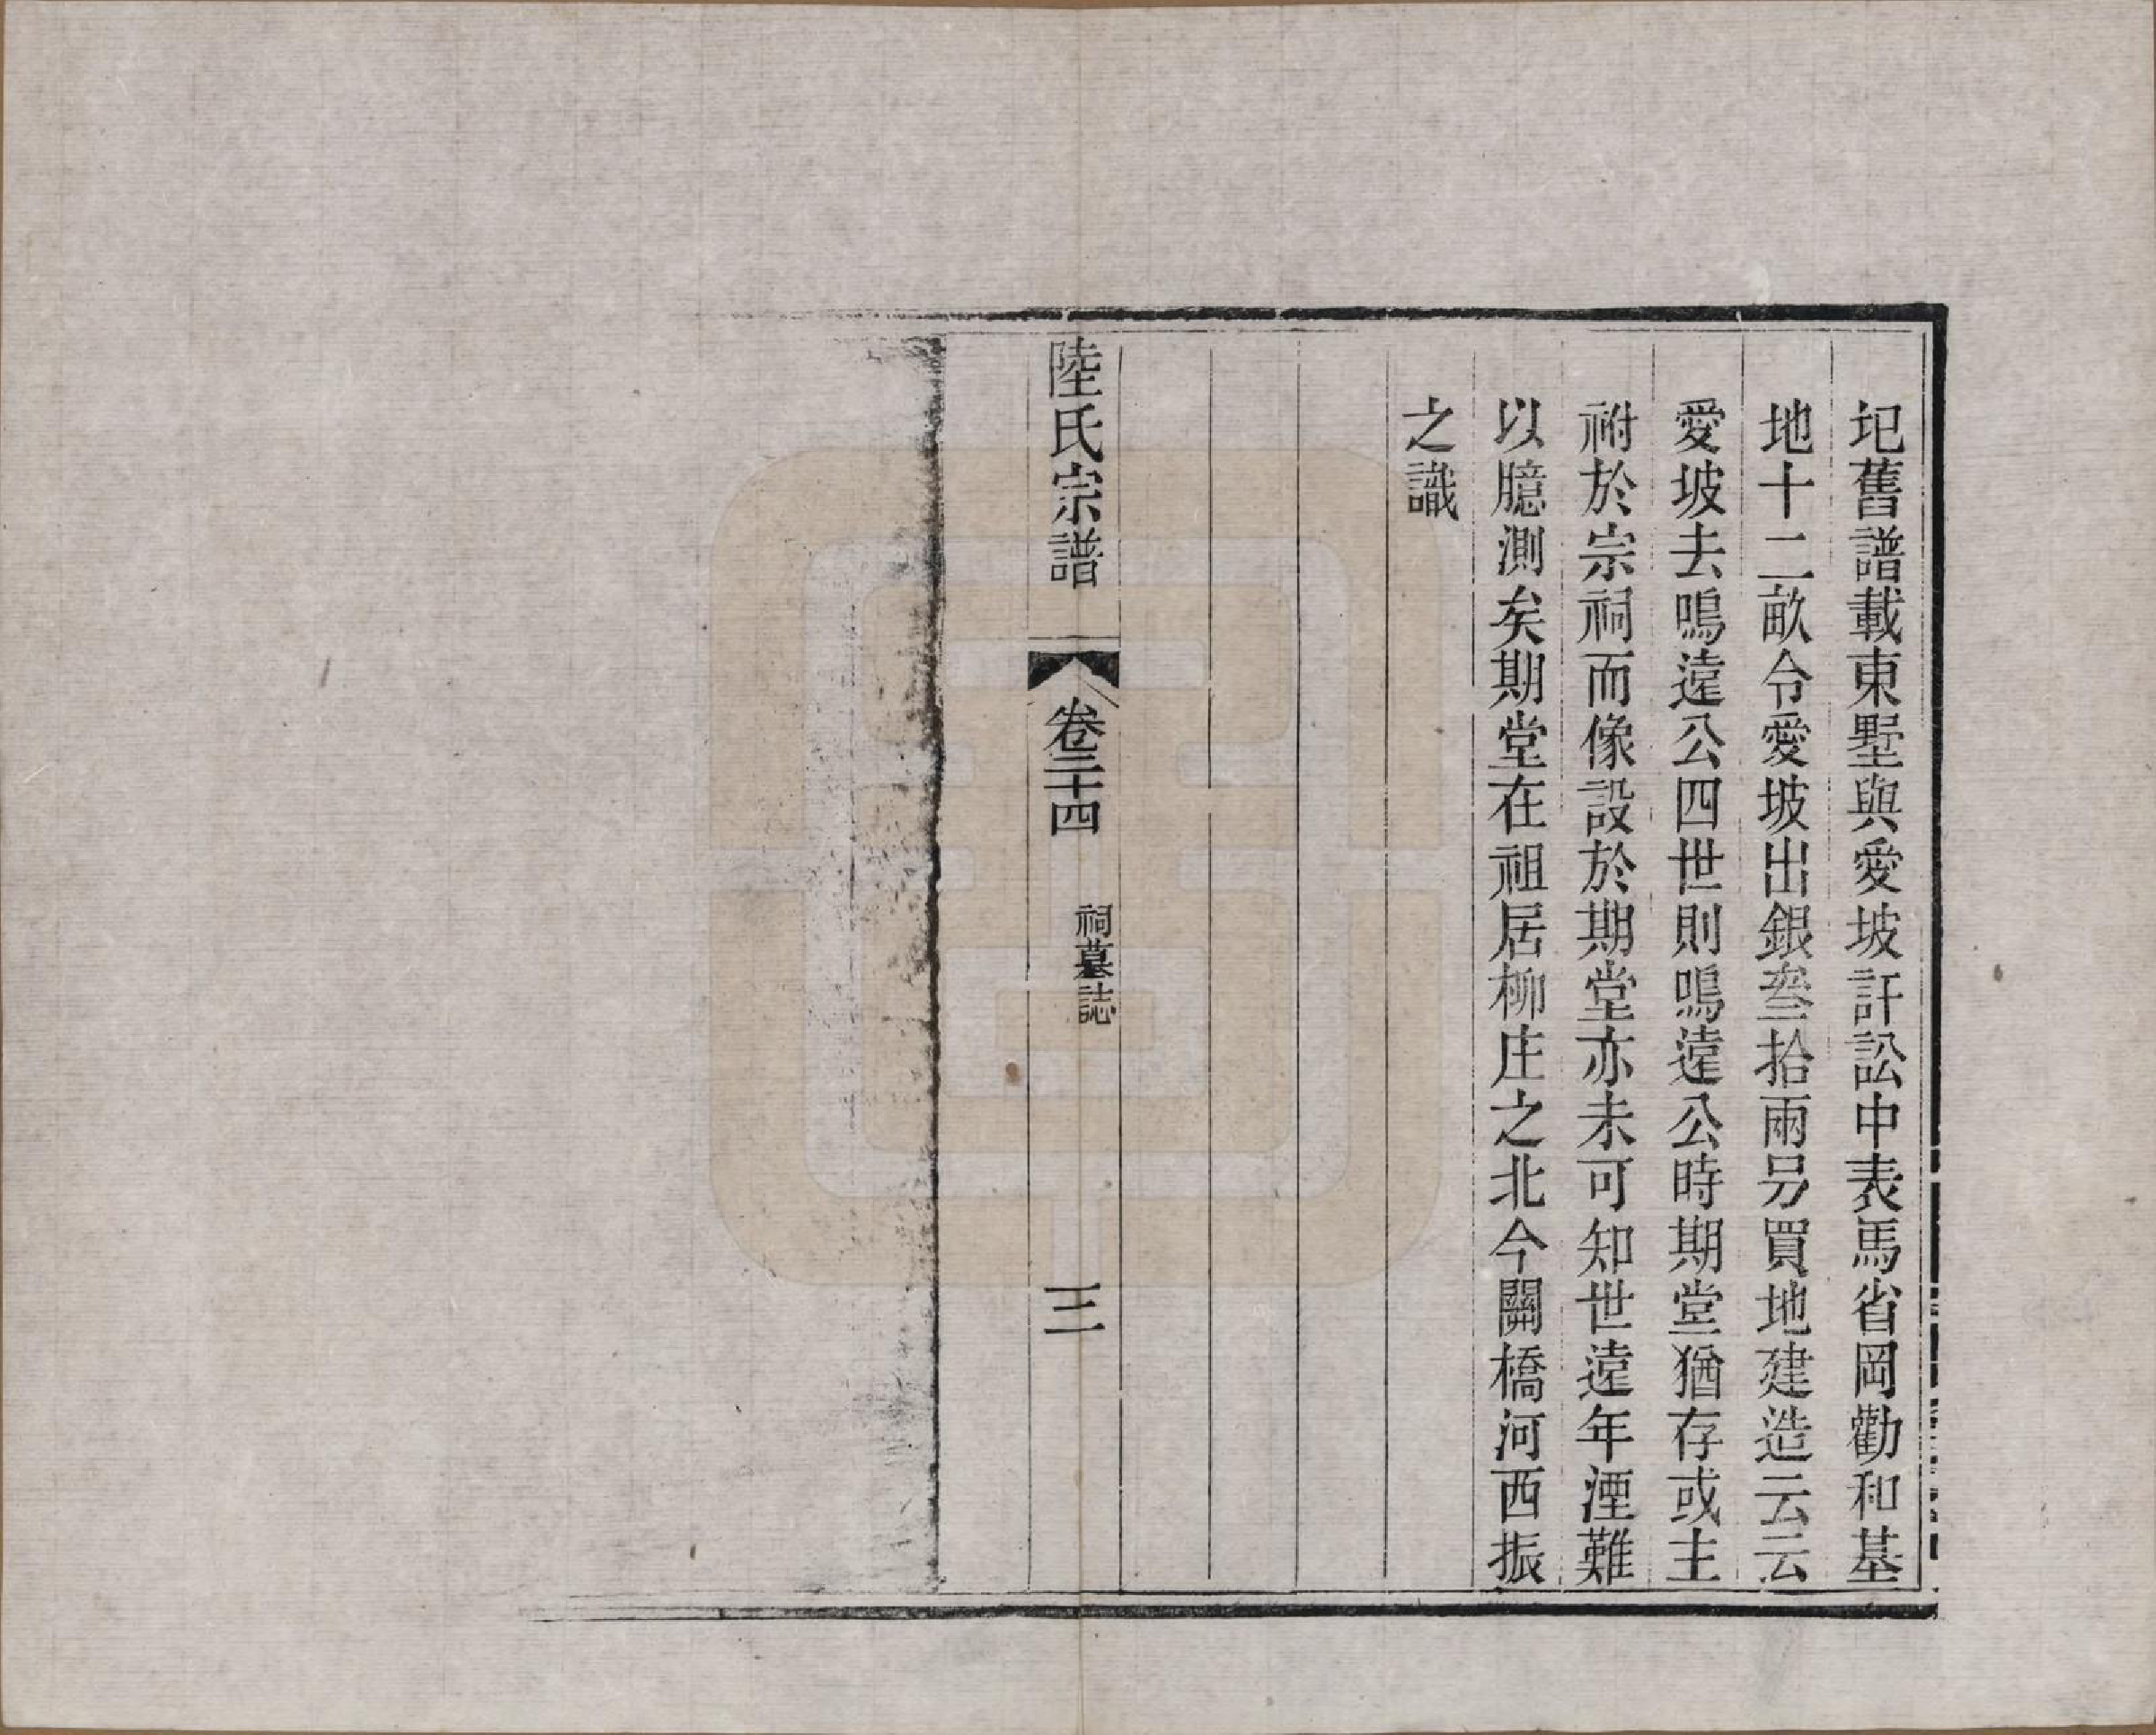 圮舊譜載東墅與愛坡訐訟中表馬省岡勸和基
地十二畝令愛坡出銀叁拾兩另買地建造云云
愛坡去鳴遠公四世則鳴遠公時期堂猶存或主
祔於宗祠而像設於期堂亦未可知世遠年湮難
以臆測矣期堂在祖居柳庄之北今關橋河西振
之識
陸氏宗譜
卷二十四
祠墓誌
三